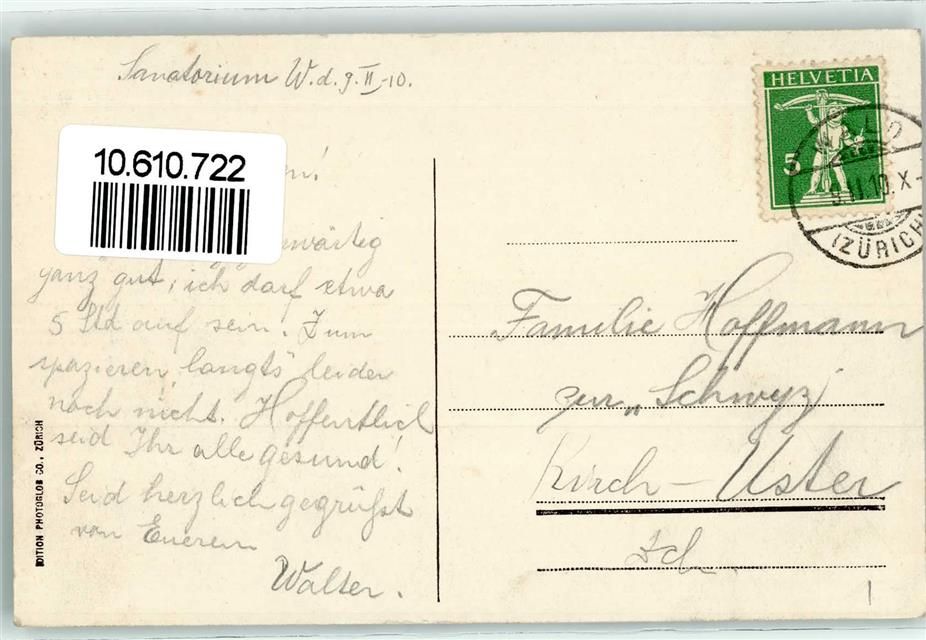 Sanatorium W. d. 9. II-10.
10.610.722
wärtig
ganz gut, ich darf etwa
5 Std auf sein. Zum
spazieren langts leider
noch nicht. Hoffentlich
seid Ihr alle gesund!
Seid herzlich gegrüßt
von Euerem
Walter.
EDITION PHOTOGLOB CO., ZÜRICH
HELVETIA
5
WALD
9.II.10.X-
(ZÜRICH)
Familie Hoffmann
zur „Schwyz"
Kirch-Uster
Zch.
1